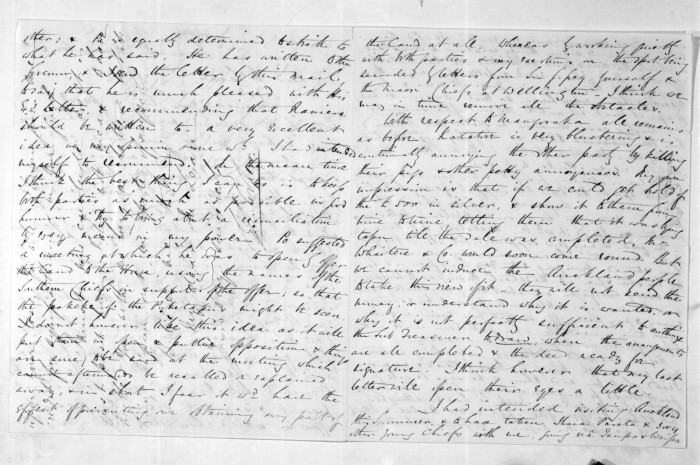 other; & he is equally determined to stick to
what he has said. He has written to the
Governor, & I send the letter by this mail
to say that he is much pleased with His
Ex's letter, & recommending that
should be written to a very excellent
idea in my opinion
myself to recommend: in the mean time
I think the best thing I can do is to keep
both parties as much as possible in good
humour & try to bring about a reconciliation
by any means in my power. Po suggested
a meeting at which he was to openly offer
the Land to the Govr, using the names of the
Southern Chiefs in support of the offer; so that
the of the might be seen
I don't however like this idea as it will
put them in open & public opposition & things
are sure to be said at the meeting which
cannot after be recalled or explained
away, & in short I fear it wd have the
effect of preventing our obtaining any part of
the Land at all whereas by working quietly
with both parties & my exertions on the spot being
seconded by letters from Sir G. Grey yourself &
the Maori Chiefs at Wellington I think we
may in time remove all the obstacles.
With respect to Mangoraka all remains
as before, Katatore is very blustering & is
continually annoying the other party by killing
their pigs & other petty annoyances. My own
impression is that if we could get hold of
the in silver, & show it to them from
time to time telling them that it was lying
open till the sale was completed, that
Whaitere & Co. would soon come round. But
we cannot induce the Auckland people
to take this view of it, they will not send the
money, or understand why it is wanted, or
why it is not perfectly sufficient to authorize
the Sub Treasurer to draw when the arrangements
are all completed & the deed ready for
signature. I think however that my last
letter will open their eyes a little.
I had intended visiting Auckland
this Summer, & to have taken & every
other young Chiefs with me, going via Taupo &